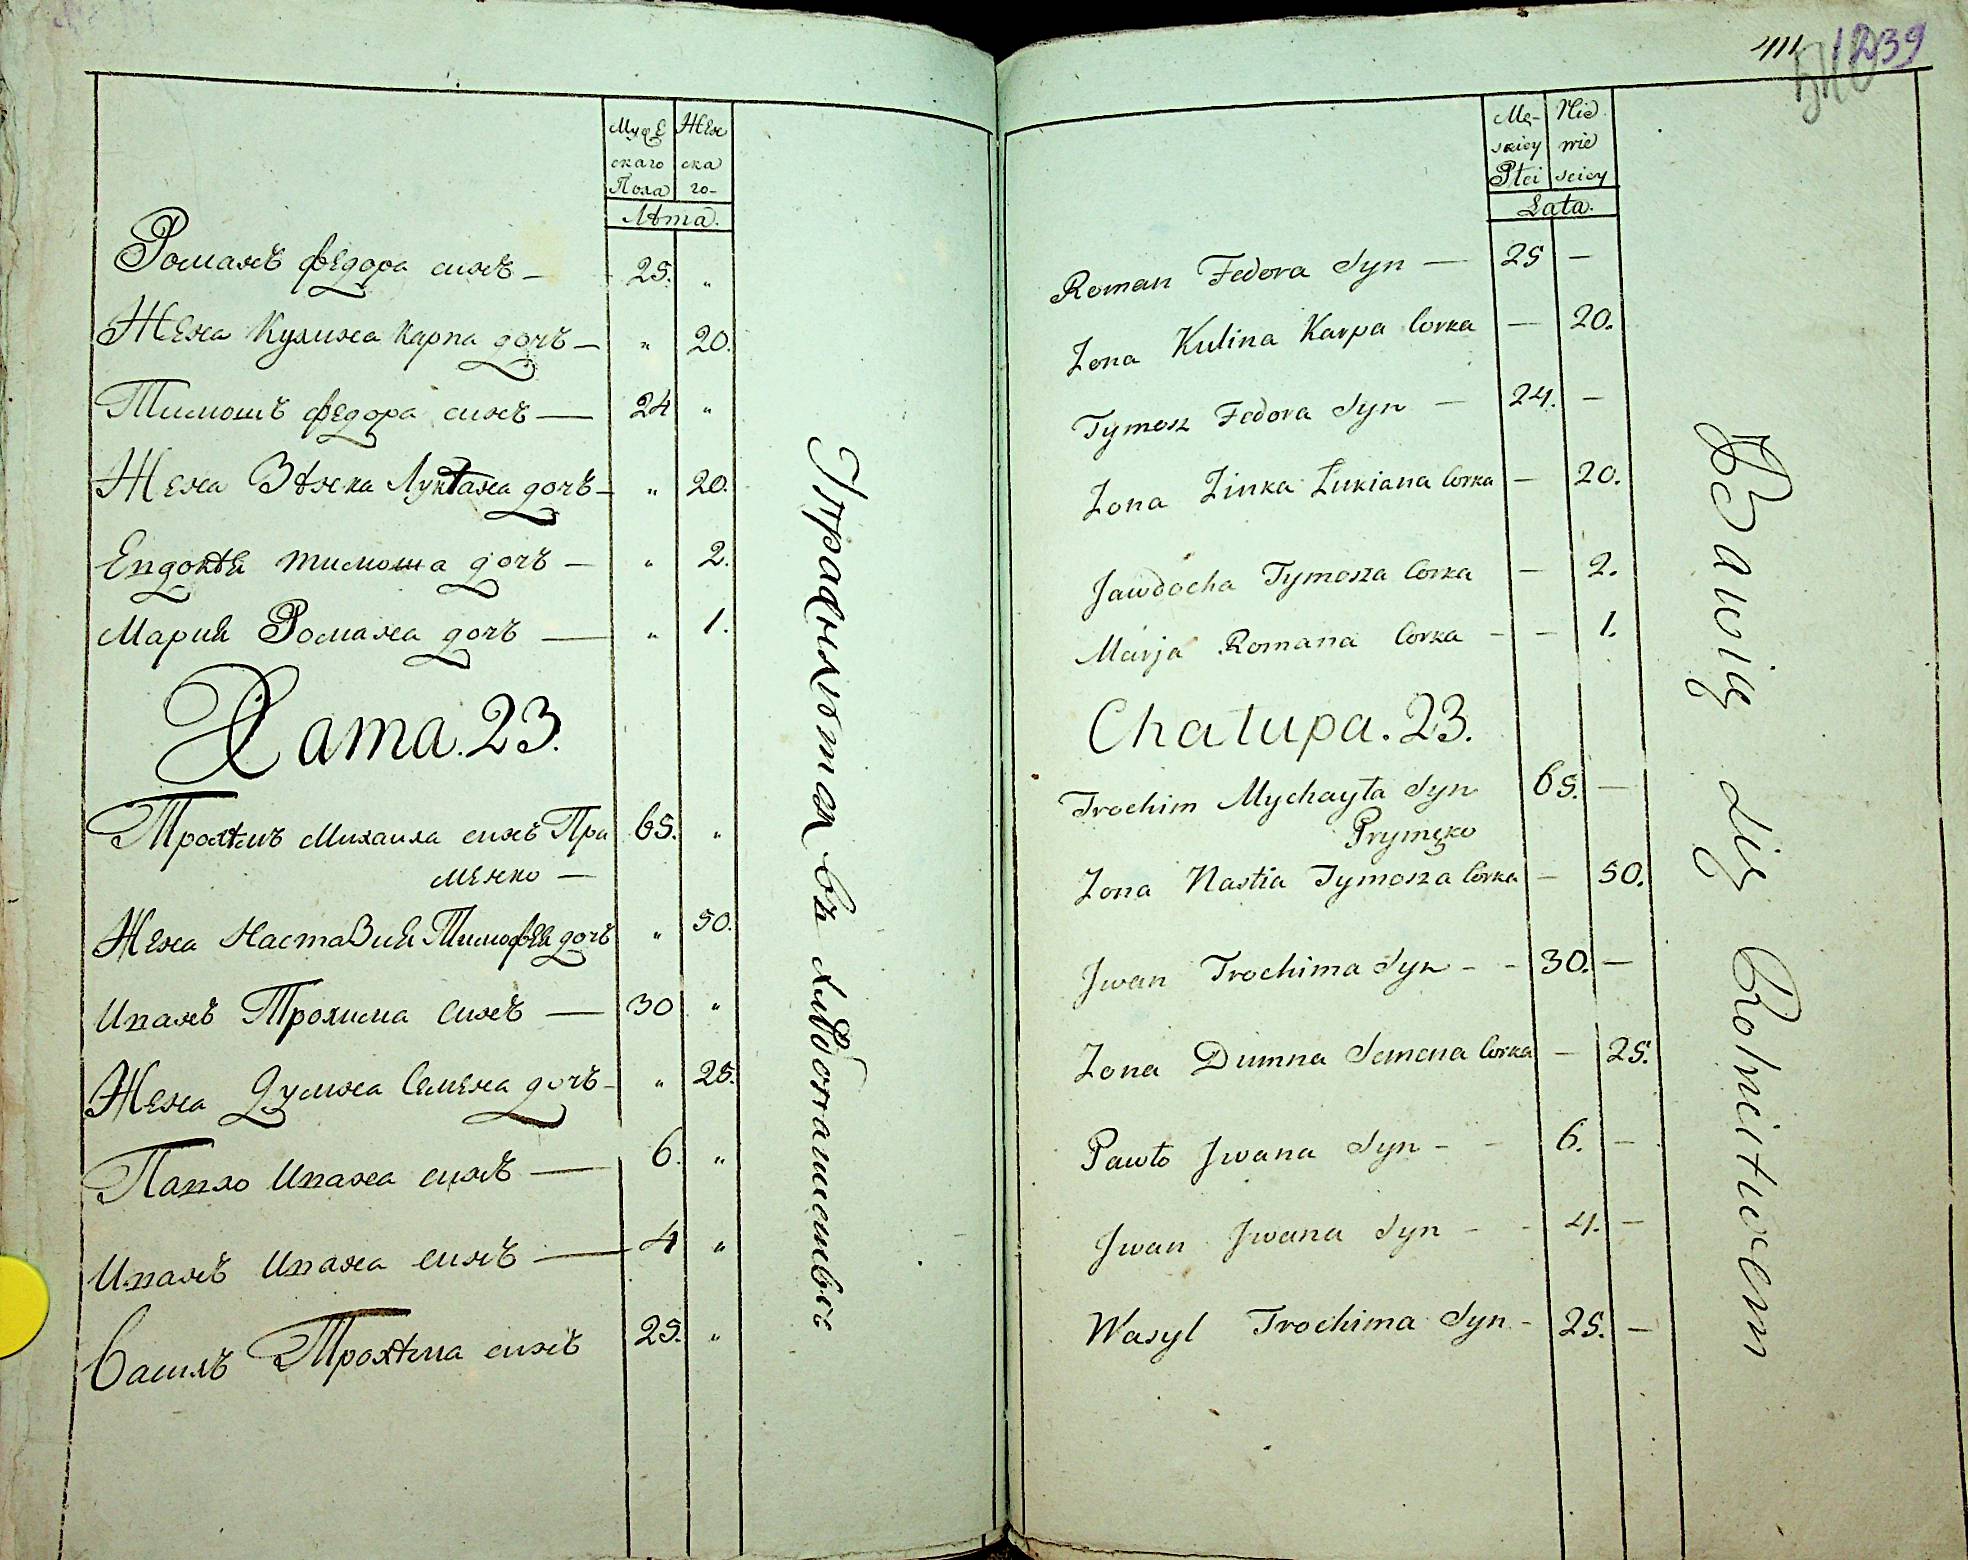 Мужескаго Пола
Женскаго
Лѣта.
Романъ Федора синъ — 25. "
Жена Кулина Карпа дочъ — " 20.
Тимошъ Федора синъ — 24 "
Жена Зѣнка Лукіана дочъ — " 20.
Евдокѣя Тимоша дочъ — " 2.
Мария Романа дочъ — " 1.
Хата. 23.
Трохѣмъ Михаила синъ При 65. "
менко —
Жена Настазия Тимофея дочъ " 50.
Иванъ Трохима синъ — 30 "
Жена Думна Семена дочъ — " 25.
Павло Ивана синъ — 6. "
Иванъ Ивана синъ — 4 "
Василъ Трохѣма синъ 25. "
Упражняютъся въ хлѣбопашествѣ
411
1239
Mę-
skiey
Płci
Nie
wie
sciey
Lata.
Roman Fedora Syn — 25 —
Zona Kulina Karpa Corka — 20.
Tymosz Fedora Syn — 24. —
Zona Zinka Łukiana Corka — 20.
Jawdocha Tymosza Corka — 2.
Marja Romana Corka - — 1.
Chałupa. 23.
Trochim Mychayła Syn 65. —
Prymęko
Zona Nastia Tymosza Corka — 50.
Jwan Trochima Syn - - 30. —
Zona Dumna Semena Corka — 25.
Pawło Jwana Syn - - 6. —
Jwan Jwana Syn - - 4. —
Wasyl Trochima Syn - 25. —
Bawią się Rolnictwem